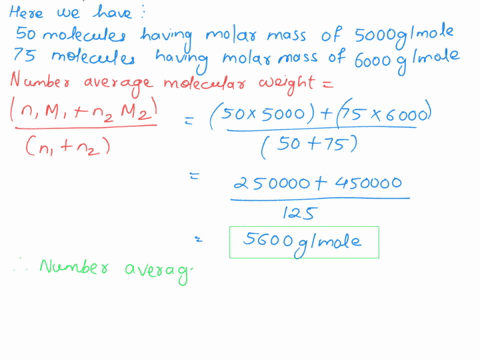 Here we have :
50 molecules having molar mass of 5000g/mole
75 molecules having molar mass of 6000 g/mole
Number average molecular weight =
(n₁M₁ + n₂ M₂) / (n₁ + n₂) = (50 × 5000) + (75 × 6000) / (50 + 75)
= 250000 + 450000 / 125
= 5600 g/mole
∴ Number averag.